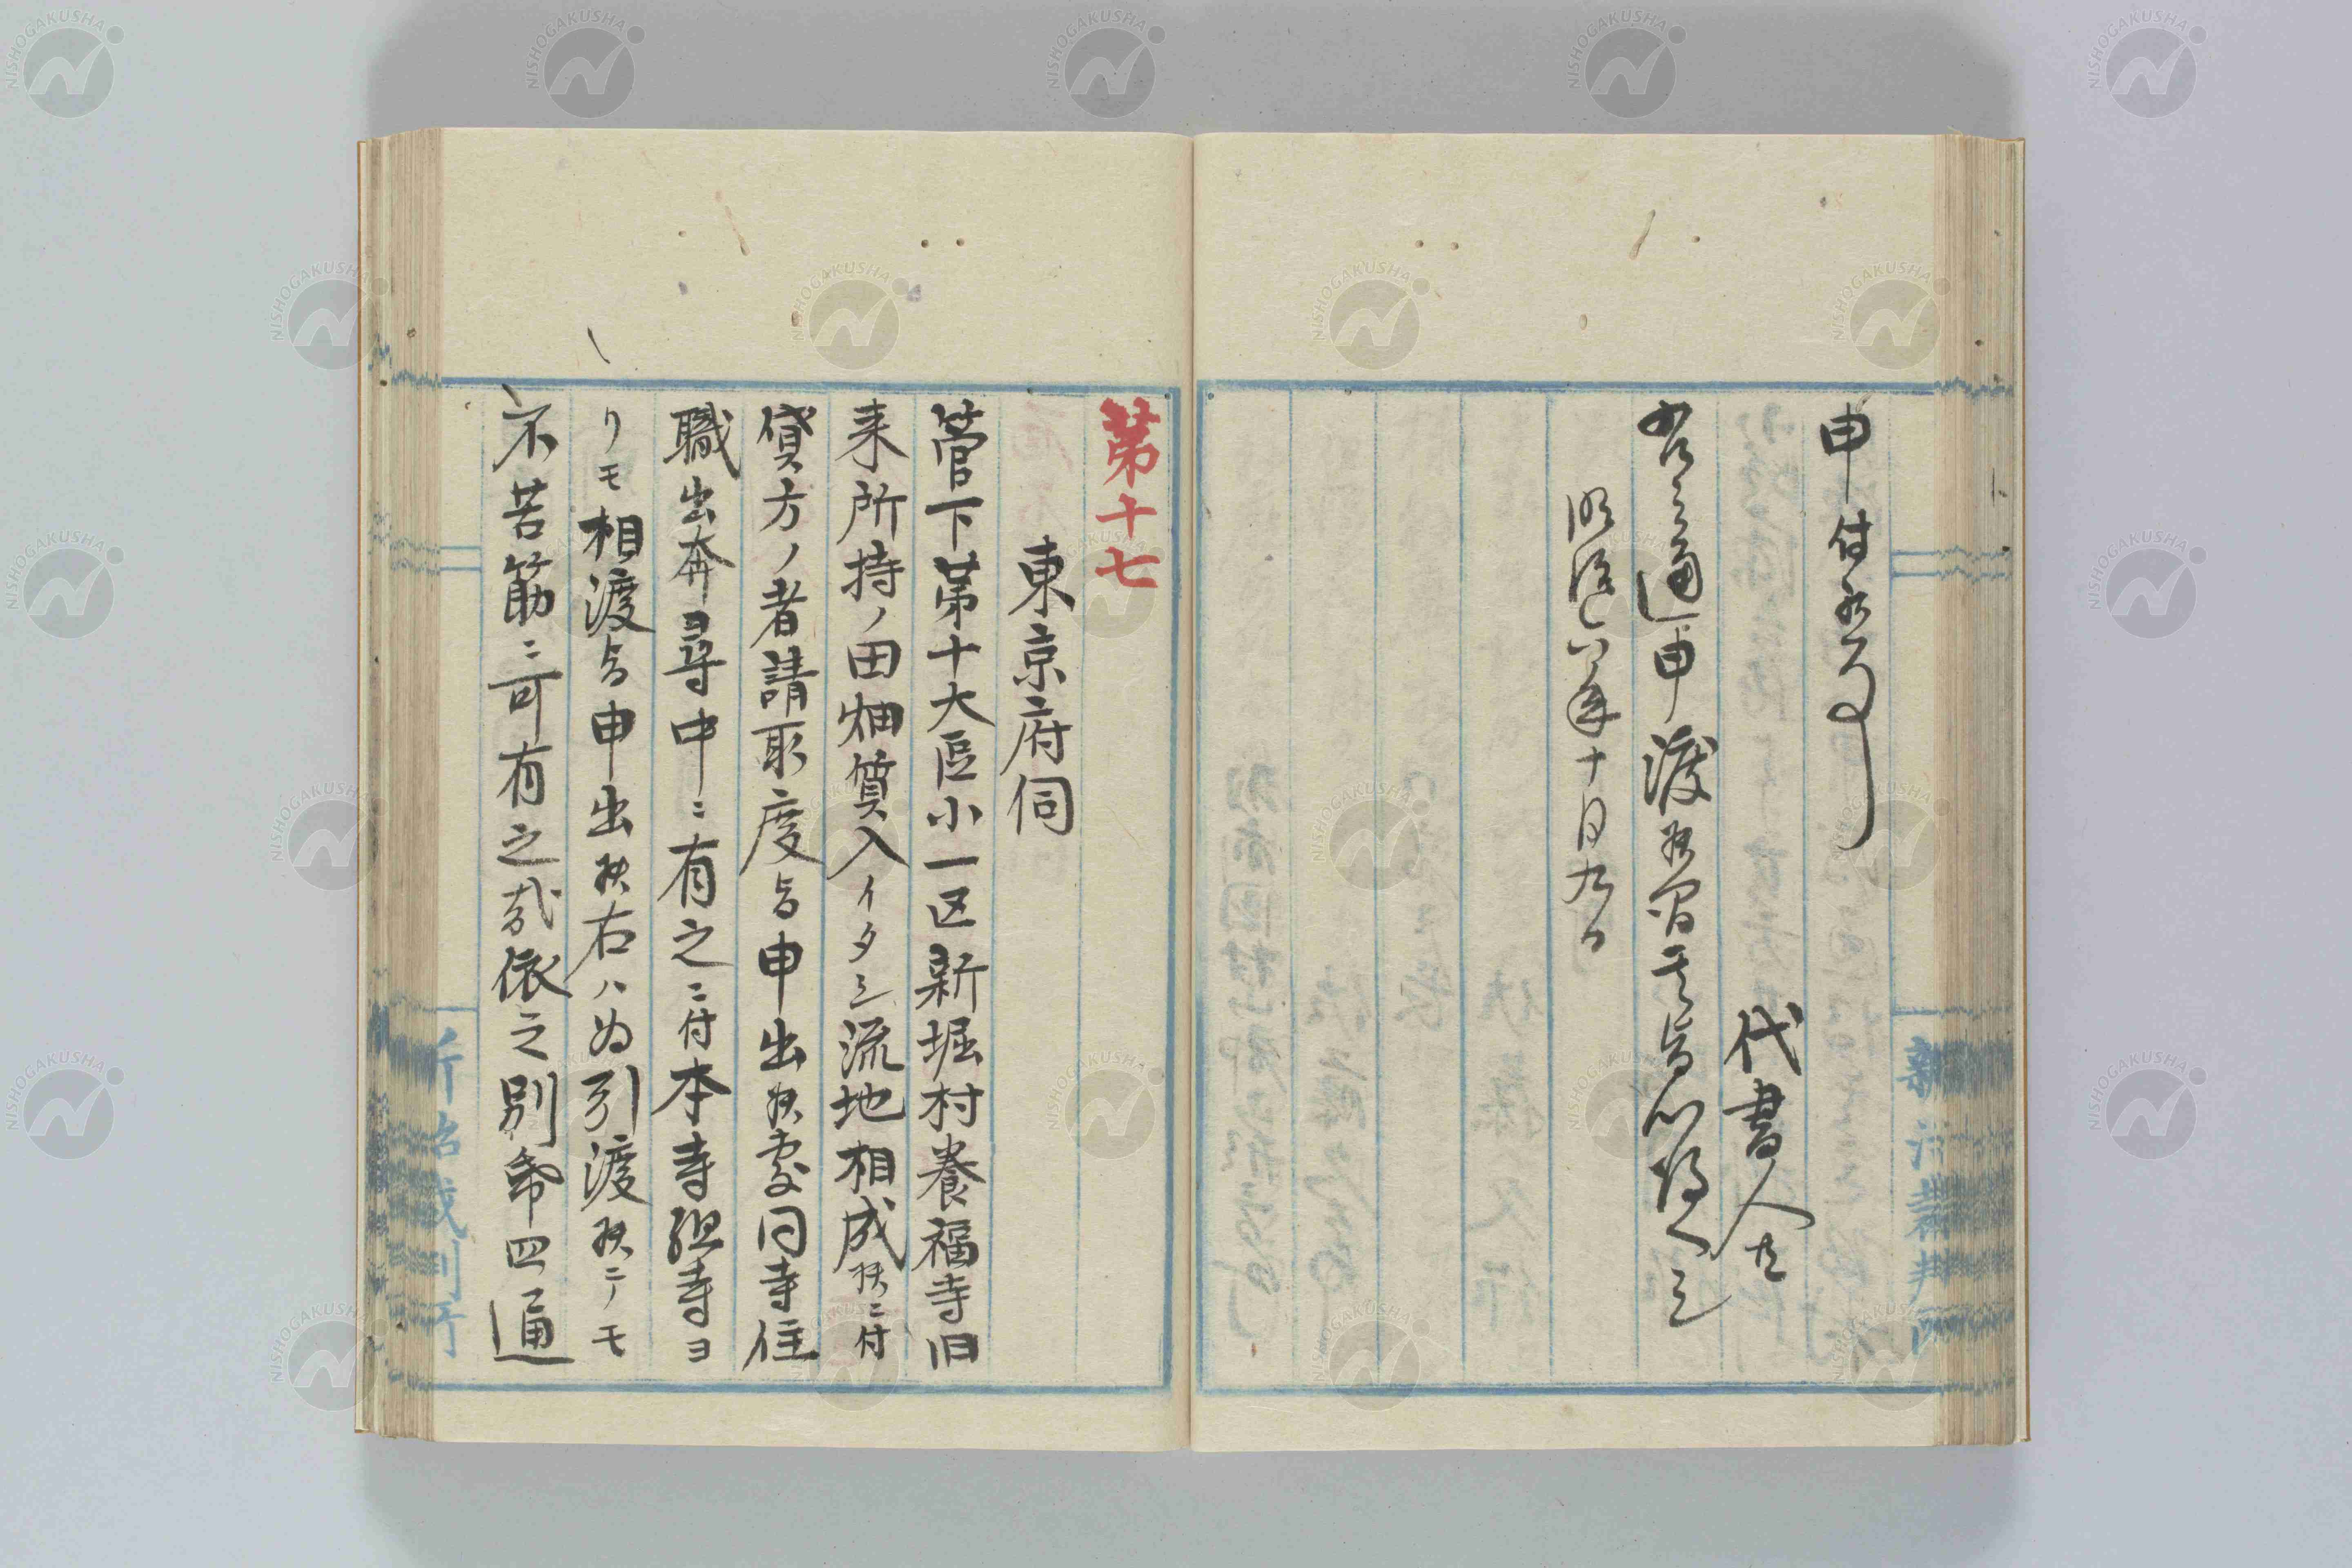 申付候事
代書人共
右之通申渡候間其旨心得へし
明治八年十月九日
第十七
東京府伺
管下第十大區小一区新堀村養福寺旧
来所持ノ田畑質入イタシ流地相成候ニ付
貸方ノ者請取度旨申出候處同寺住
職出奔尋中ニ有之ニ付本寺組寺ヨ
リモ相渡旨申出候右ハ為引渡候テモ
不苦筋ニ可有之哉依之別帋四通
NISHOGAKUSHA